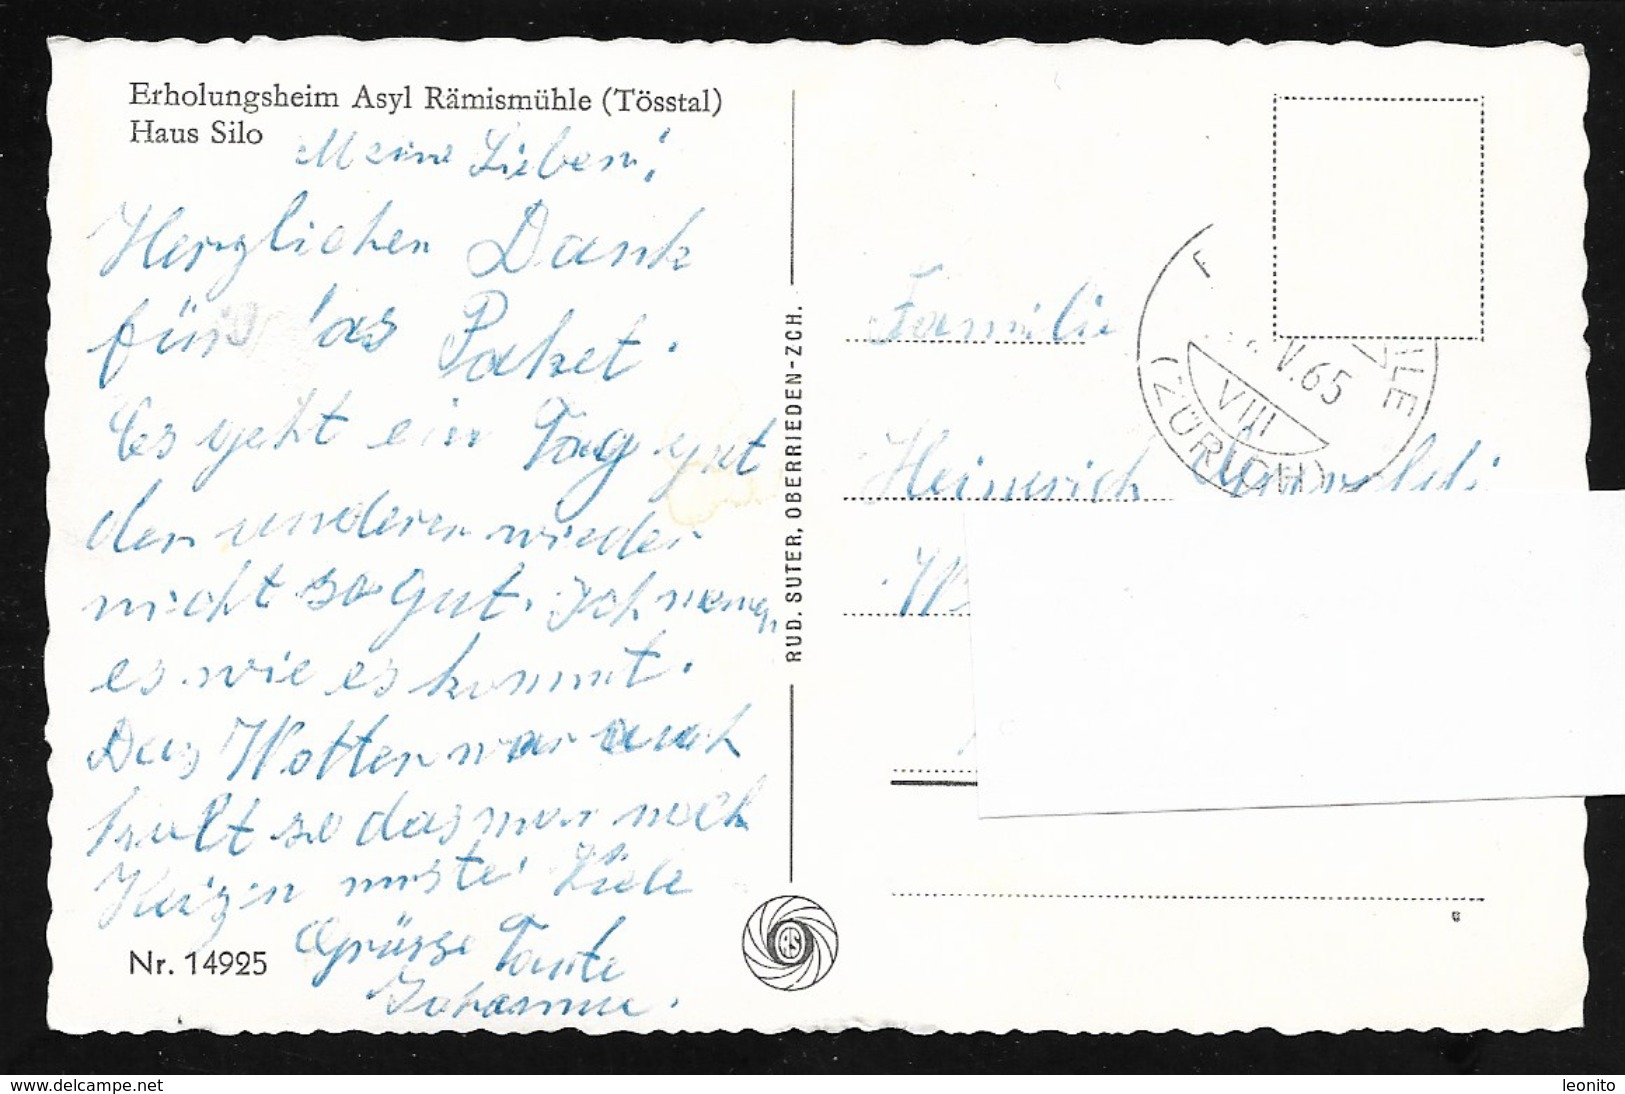 Erholungsheim Asyl Rämismühle (Tösstal)
Haus Silo
Meine Lieben!
Herzlichen Dank
fürs 'as Paket.
Es geht ein Tag gut
der anderer wieder
nicht so gut. Ich nemen
es wie es kommt.
Das Wetter war auch
kalt so das mar noch
Heizen muste. Viele
Grüsse Tante
Johanna.
Nr. 14925
RUD. SUTER, OBERRIEDEN-ZCH.
RS
Familie
Heinrich
V.65
VIII
(ZÜRICH)
www.delcampe.net
leonito